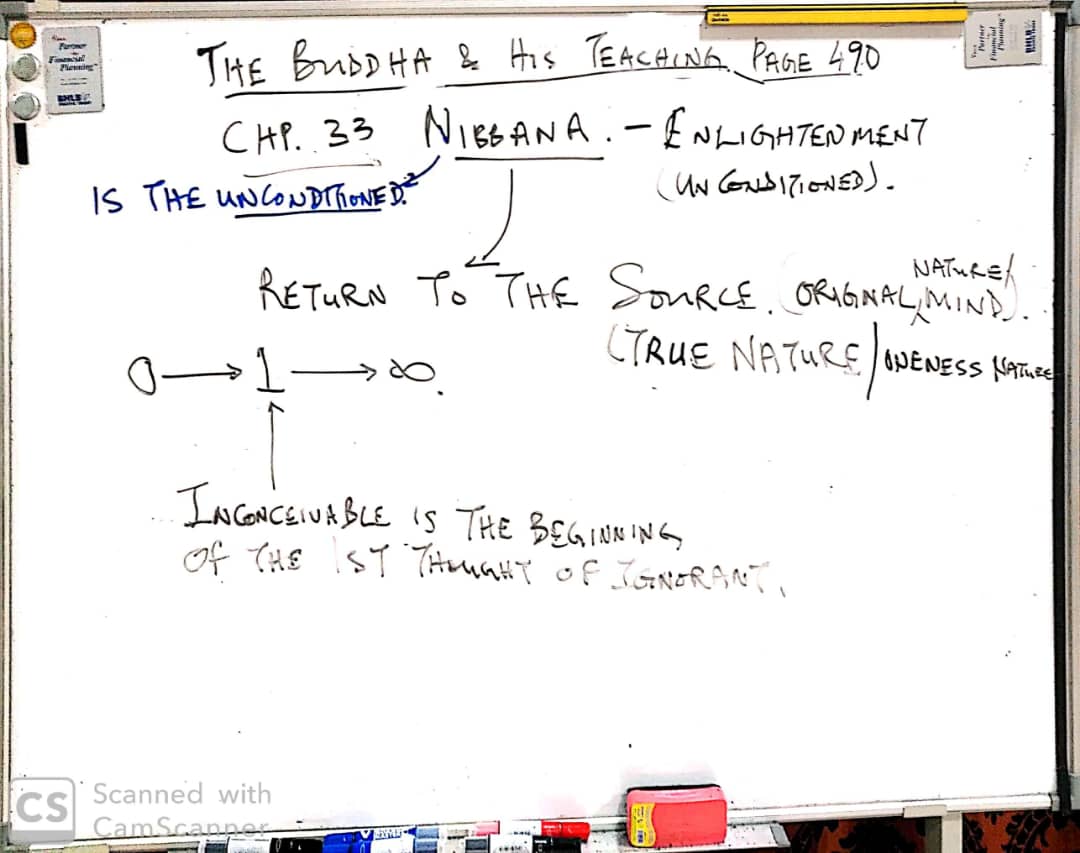 THE BUDDHA & HIS TEACHING PAGE 490
CHP. 33 NIBBANA. - ENLIGHTENMENT
IS THE UNCONDITIONED.
(UNCONDITIONED).
NATURE/
RETURN TO THE SOURCE. (ORIGNAL, MIND).
(TRUE NATURE/ONENESS NATURE
0 → 1 → ∞.
INCONCEIVABLE IS THE BEGINNING
OF THE 1ST THOUGHT OF IGNORANT.
Partner
Financial
Planning
Your
Partner
Financial
Planning
CS Scanned with
CamScanner